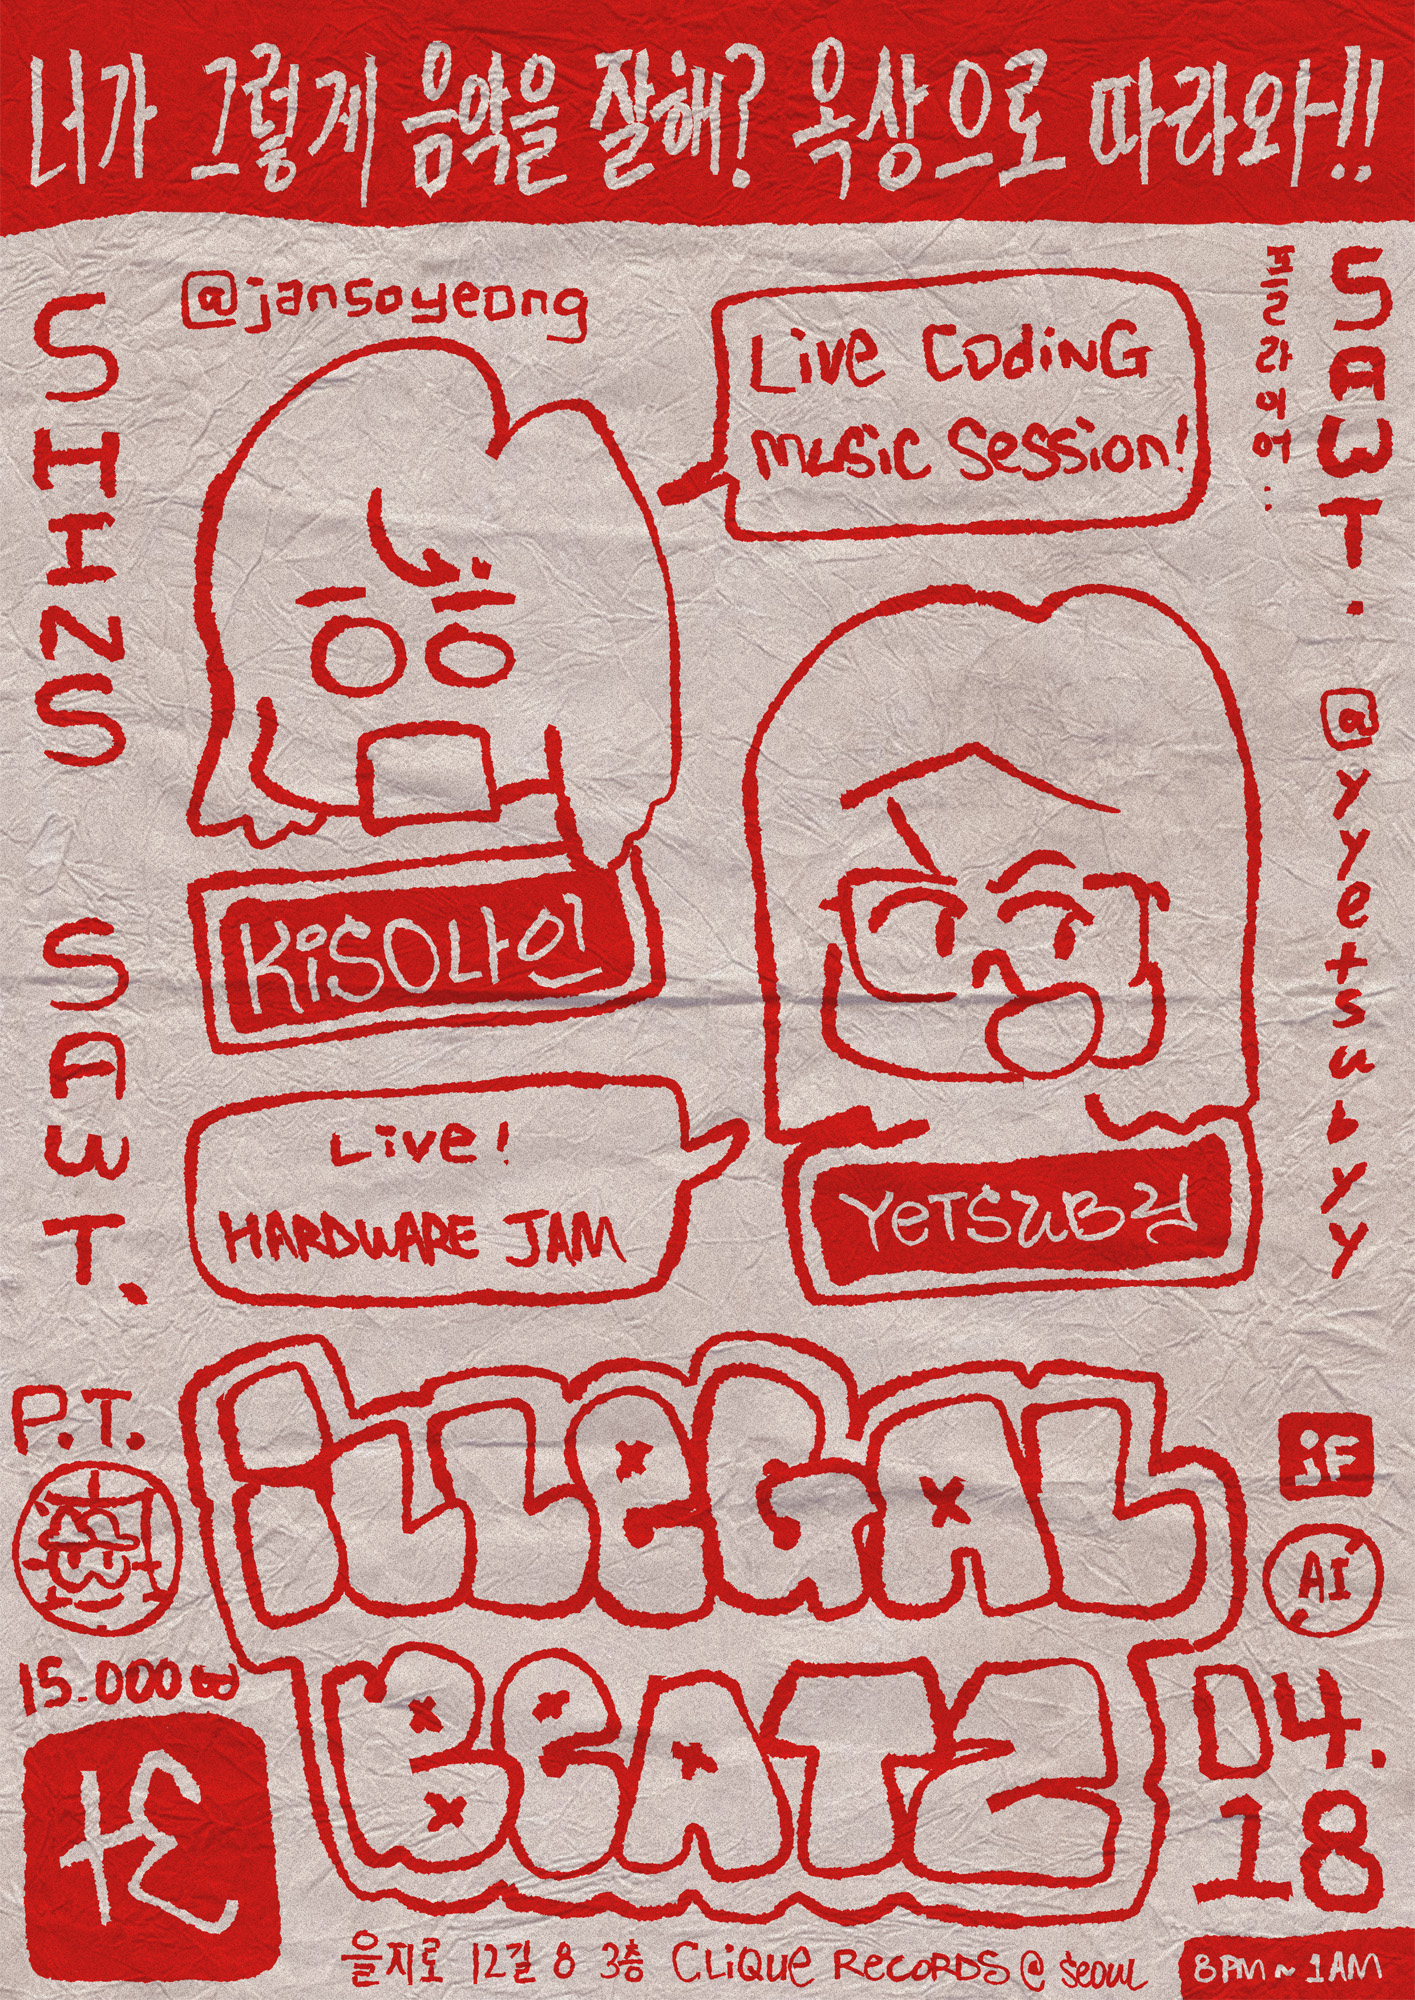 너가 그렇게 음악을 잘해? 옥상으로 따라와!!
SHINS SAWT.
@jansoyeong
Live CODiNG
music session!
프라이어..
SAWT.
@yyetsubyy
KiSO나인
Live!
HARDWARE JAM
YeTSuBy
iLLeGAL
BeATZ
P.T.
15.000₩
iF
AI
04.
18
을지로 12길 8 3층 CLiQUe RecoRDS @ seoul
8PM~1AM